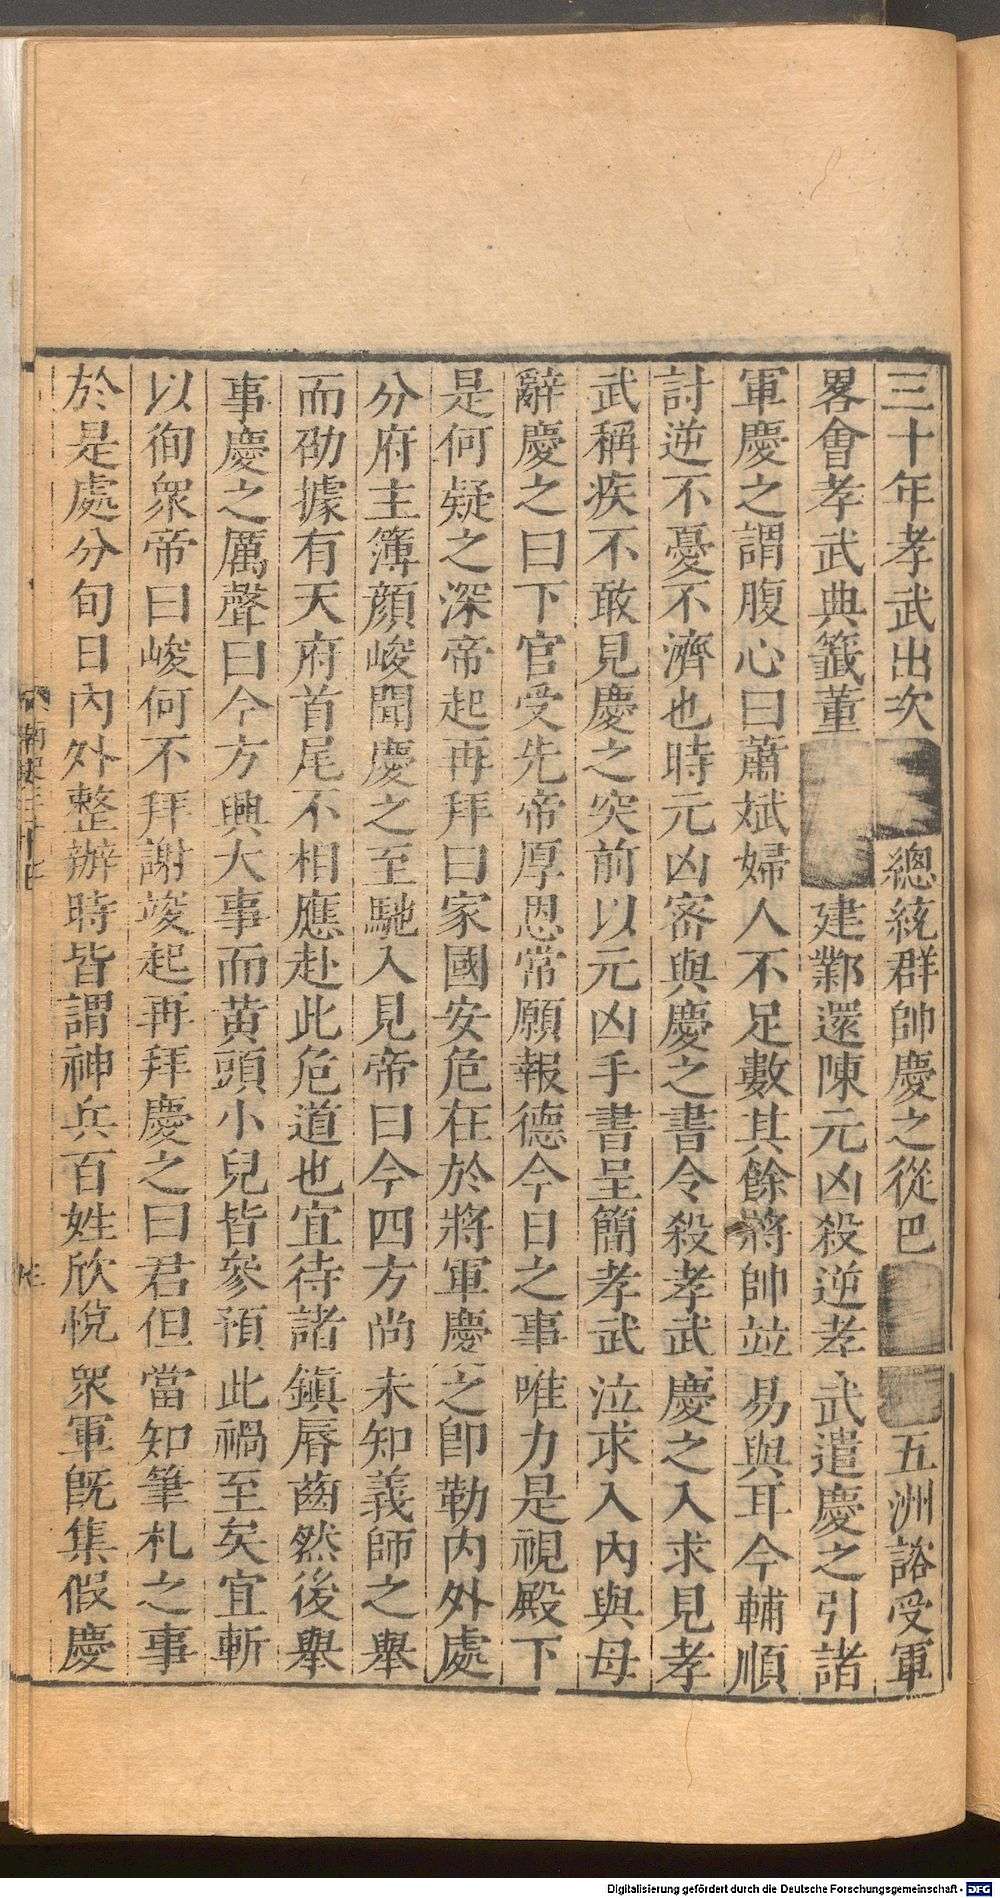 三十年孝武出次總統群帥慶之從巴五洲諮受軍
畧會孝武典籖董建鄴還陳元凶殺逆孝武遣慶之引諸
軍慶之謂腹心曰蕭斌婦人不足數其餘將帥並易與耳今輔順
討逆不憂不濟也時元凶密與慶之書令殺孝武慶之入求見孝
武稱疾不敢見慶之突前以元凶手書呈簡孝武泣求入內與母
辭慶之曰下官受先帝厚恩常願報德今日之事唯力是視殿下
是何疑之深帝起再拜曰家國安危在於將軍慶之卽勒內外處
分府主簿顏峻聞慶之至馳入見帝曰今四方尚未知義師之舉
而劭據有天府首尾不相應赴此危道也宜待諸鎮脣齒然後舉
事慶之厲聲曰今方興大事而黃頭小兒皆參預此禍至矣宜斬
以徇衆帝曰峻何不拜謝竣起再拜慶之曰君但當知筆札之事
於是處分旬日內外整辦時皆謂神兵百姓欣悅衆軍旣集假慶
Digitalisierung gefördert durch die Deutsche Forschungsgemeinschaft - DFG